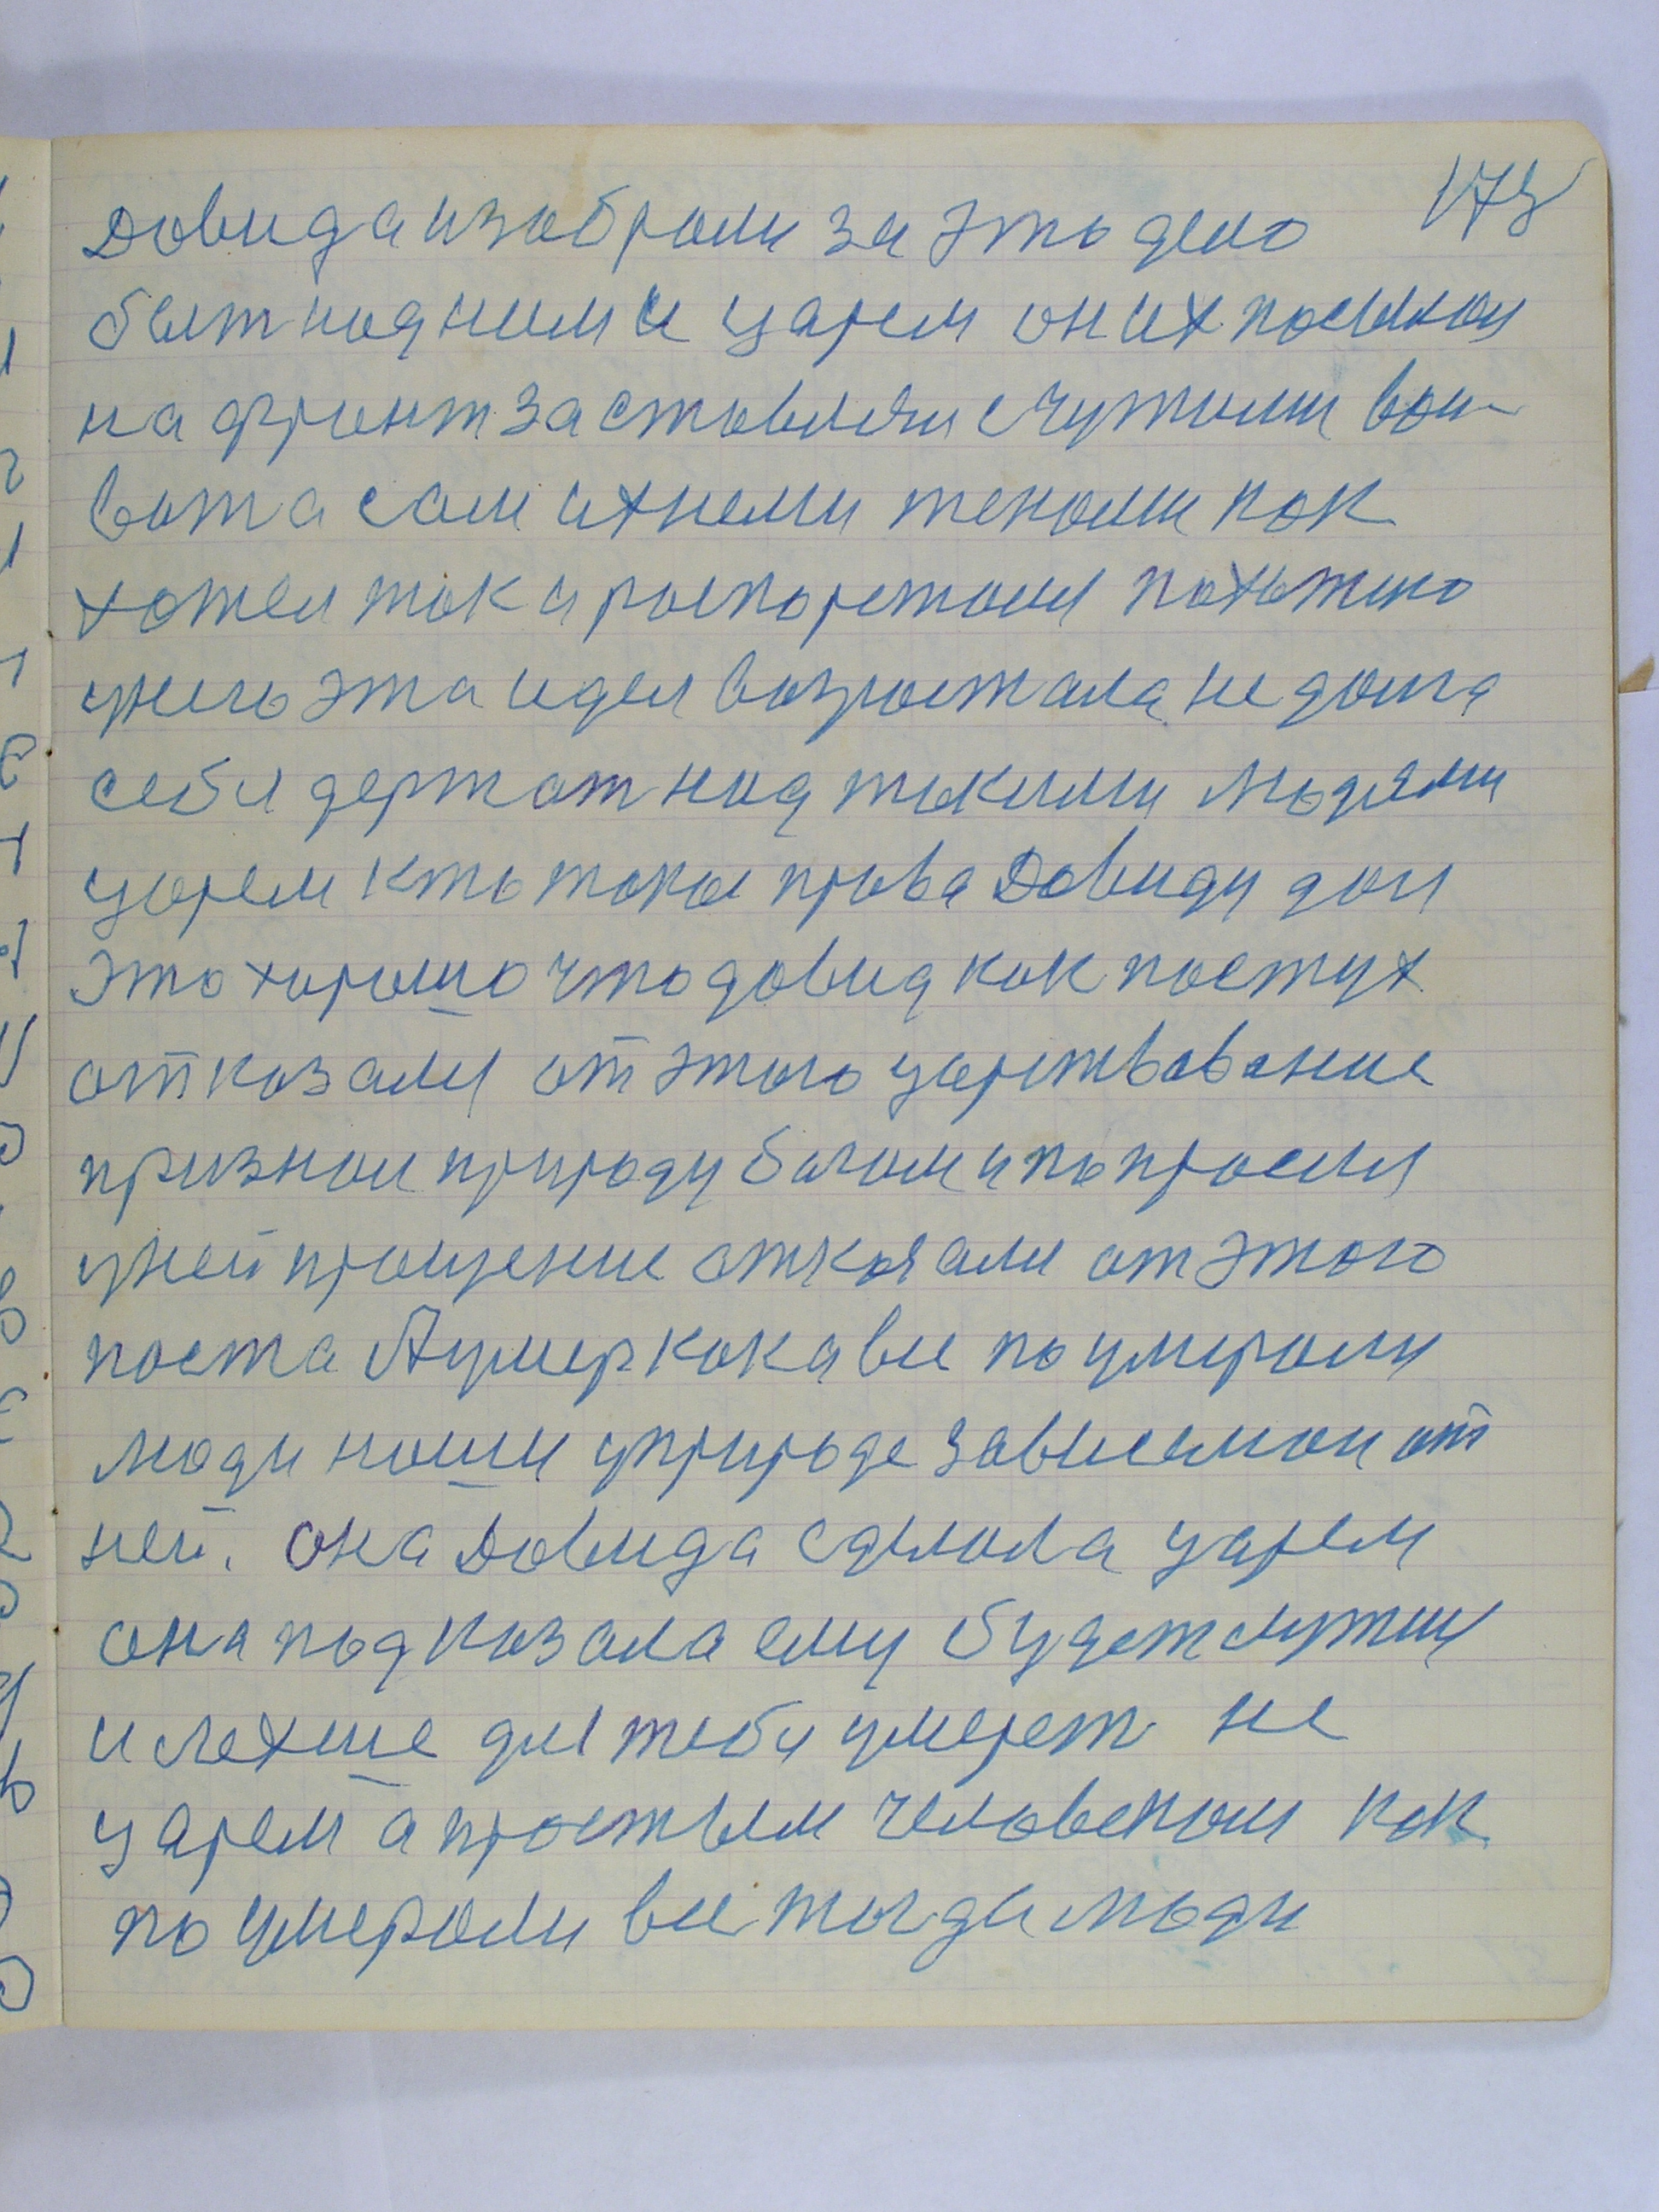 173
Довида изобрали за это дело
быт над ними царем он их посылал
на фронт заставлял счужими вои-
вата сам ихнеми женами как
хотел так и распорежался пахужшо
унего эта идея возростала не дома
себя держат над такими людями
царем кто такое права Довиду дал
это хорошо что довид как пастух
отказался от этого царствование
признал природу богом и попросил
уней прощение отказался от этого
поста А умер как и все поумерали
люди наши уприроде зависемои от
ней. она Довида сделала царем
она подказала ему будет лутши
и лехше для тебя умерет не
царем а простым человеком как
поумерали все тогда люди